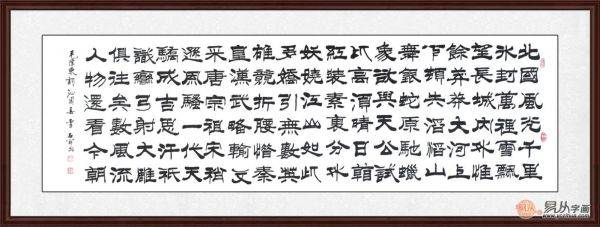 北國風光千里
冰封萬里雪飄
望長城內外惟
餘莽莽大河上
下頓失滔滔山
舞銀蛇原馳蠟
象欲與天公試
比高須晴日看
紅裝素裹分外
妖嬈江山如此
多嬌引無數英
雄競折腰惜秦
皇漢武略輸文
采唐宗宋祖稍
遜風騷一代天
驕成吉思汗衹
識彎弓射大雕
俱往矣數風流
人物還看今朝
毛澤東詞沁園春雪
易从字画